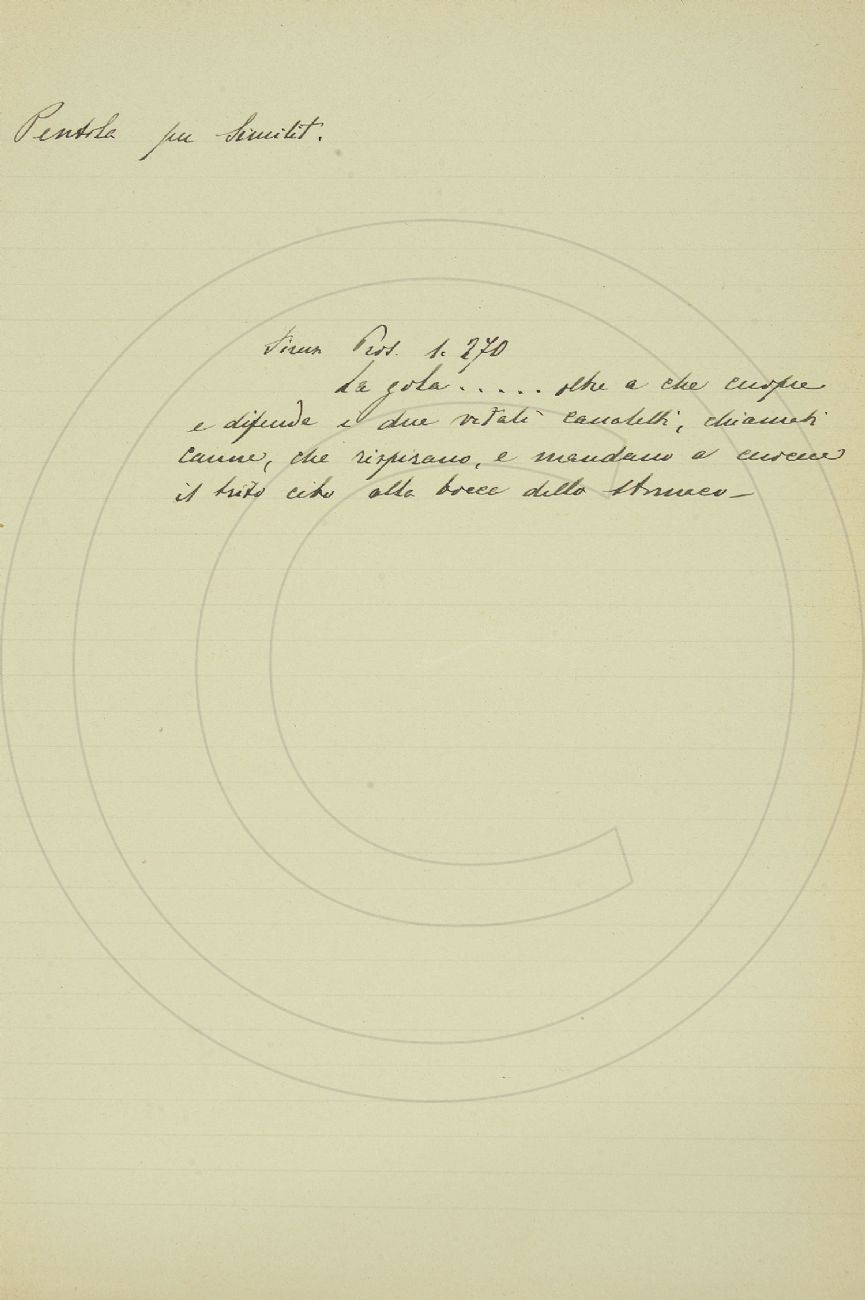 Pentola per Similit.
Firenz. Pros. 1. 270
La gola . . . . . oltre a che cuopre
e difende i due vitali canaletti, chiamati
canne, che respirano, e mandano a cuocere
il trito cibo alla bocca dello stomaco_